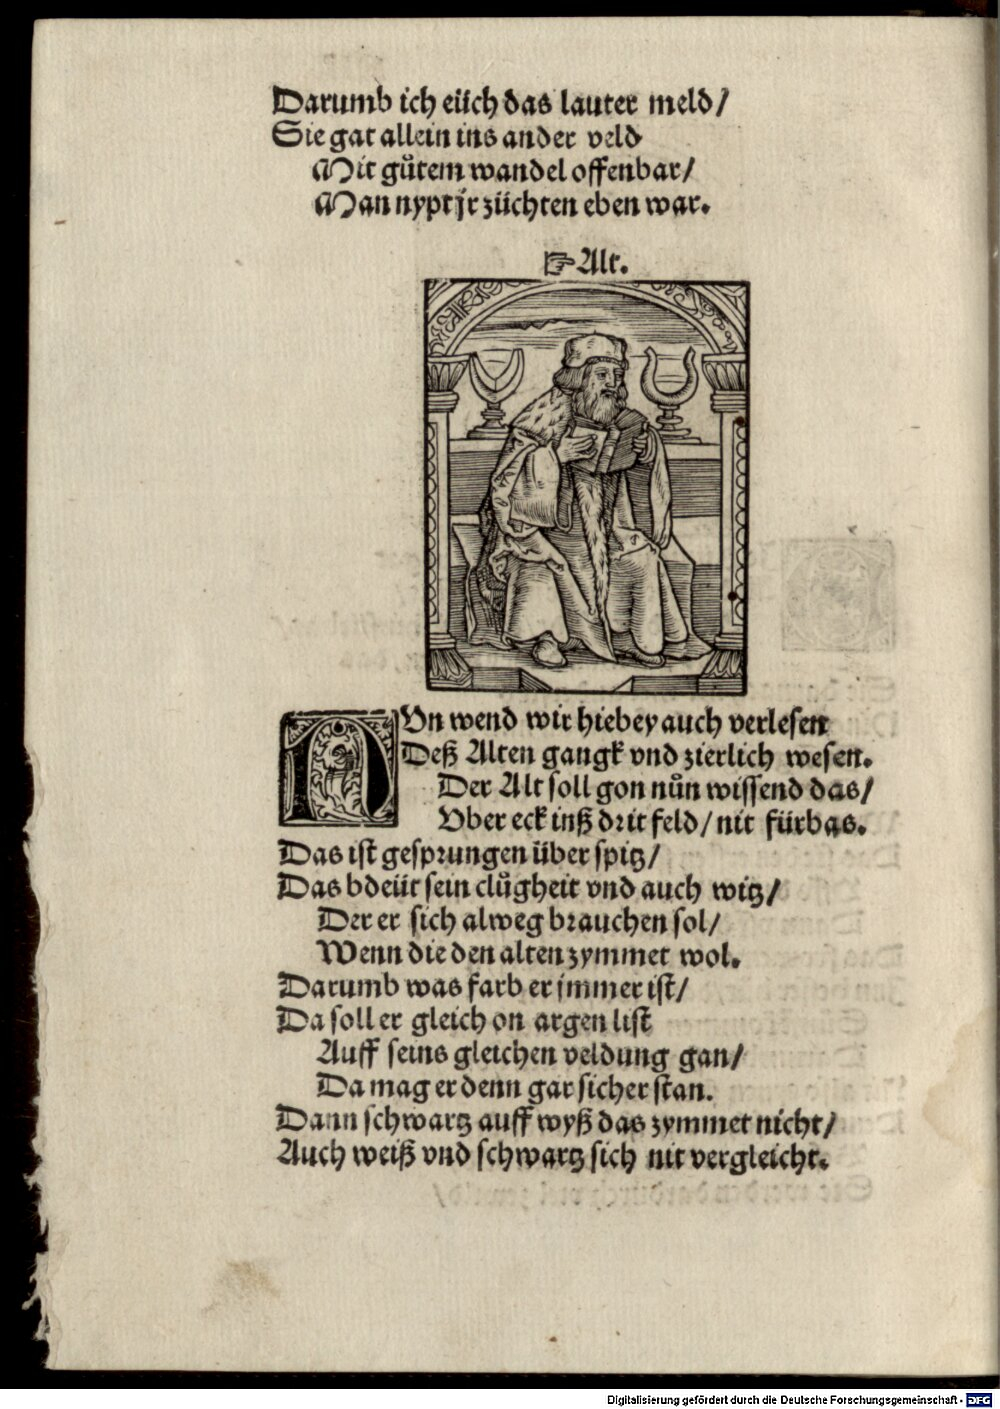 Darumb ich eüch das lauter meld/
Sie gat allein ins ander veld
Mit gůtem wandel offenbar/
Man nypt jr züchten eben war.
☞Alt.
NUn wend wir hiebey auch verlesen
Deß Alten gangk vnd zierlich wesen.
Der Alt soll gon nůn wissend das/
Uber eck inß drit feld/ nit fürbas.
Das ist gesprungen über spitz/
Das bdeüt sein clůgheit vnd auch witz/
Der er sich alweg brauchen sol/
Wenn die den alten zymmet wol.
Darumb was farb er jmmer ist/
Da soll er gleich on argen list
Auff seins gleichen veldung gan/
Da mag er denn gar sicher stan.
Dann schwartz auff wyß das zymmet nicht/
Auch weiß vnd schwartz sich nit vergleicht.
Digitalisierung gefördert durch die Deutsche Forschungsgemeinschaft - DFG